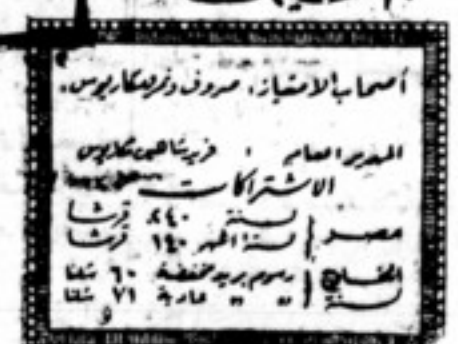 أصحاب الامتياز، صروف ونمر ومكاريوس.
المدير العام : فريد شاهين مكاريوس
الاشتراكات
مصر لسنة ٢٤٠ قرشا
لستة اشهر ١٤٠ قرشا
الخارج رسوم بريد مخفضة ٦٠ شلنا
لسنة " " عادية ٧١ شلنا